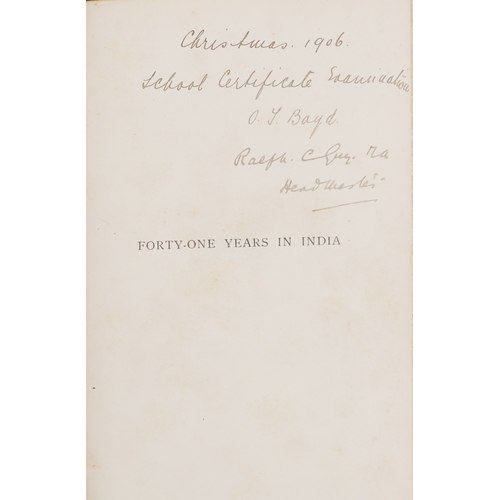 Christmas. 1906.
School Certificate Examination
O. J. Boyd.
Ralph. C Guy. Ma
Headmaster
FORTY-ONE YEARS IN INDIA